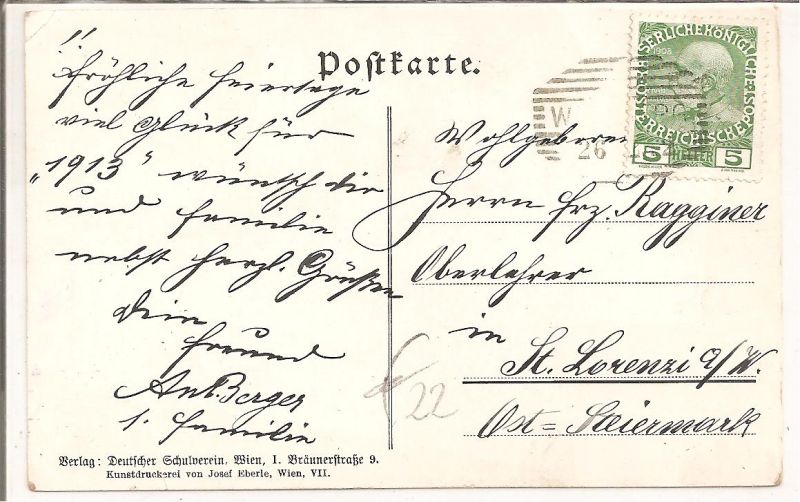 Postkarte.
!!
fröhliche feiertage
viel Glück für
„1913“ wünsch dir
und familie
nebst herzl. Grüßen
dein
freund
Ant. Berger
s. familie
KAISERLICHEKÖNIGLICHE
1908
ÖSTERREICHISCHE POST
5 HELLER 5
W
26
Wohlgeboren
Herrn frz. Ragginer
Oberlehrer
in
St. Lorenzi a/W.
Ost=Steiermark
22
Verlag: Deutscher Schulverein, Wien, I. Bräunerstraße 9.
Kunstdruckerei von Josef Eberle, Wien, VII.